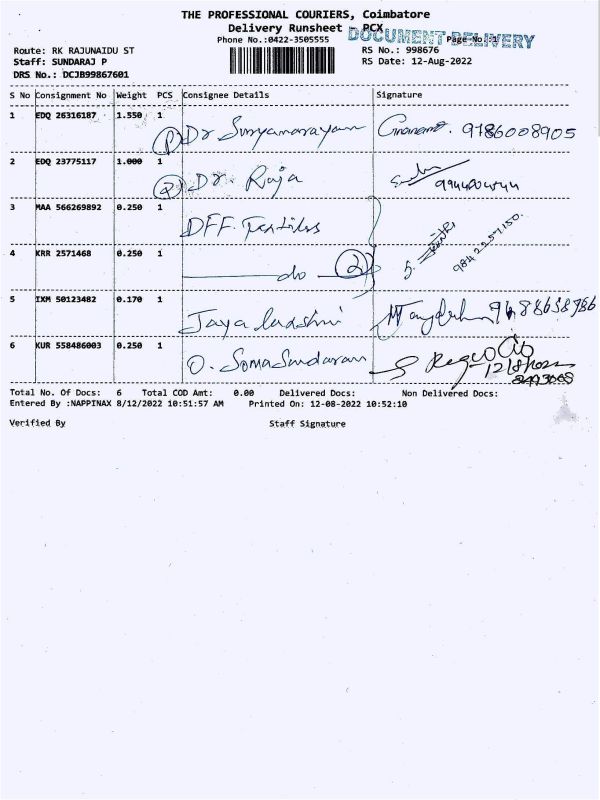 THE PROFESSIONAL COURIERS, Coimbatore
Delivery Runsheet - PCX
DOCUMENT DELIVERY
Phone No.:0422-3505555 Page No.:1
Route: RK RAJUNAIDU ST RS No.: 998676
Staff: SUNDARAJ P RS Date: 12-Aug-2022
DRS No.: DCJB99867601
S No Consignment No Weight PCS Consignee Details Signature
1 EDQ 26316187 1.550 1 Dr Suryanarayan 9786008905
2 EDQ 23775117 1.000 1 (2) Dr. Raja
3 MAA 566269892 0.250 1 DFF. Textiles 9842257150.
4 KRR 2571468 0.250 1 do (2)
5 IXM 50123482 0.170 1 Jaya Lakshmi
6 KUR 558486003 0.250 1 O. Somasundaram 12/8/2022
Total No. Of Docs: 6 Total COD Amt: 0.00 Delivered Docs: Non Delivered Docs:
Entered By :NAPPINAX 8/12/2022 10:51:57 AM Printed On: 12-08-2022 10:52:10
Verified By Staff Signature